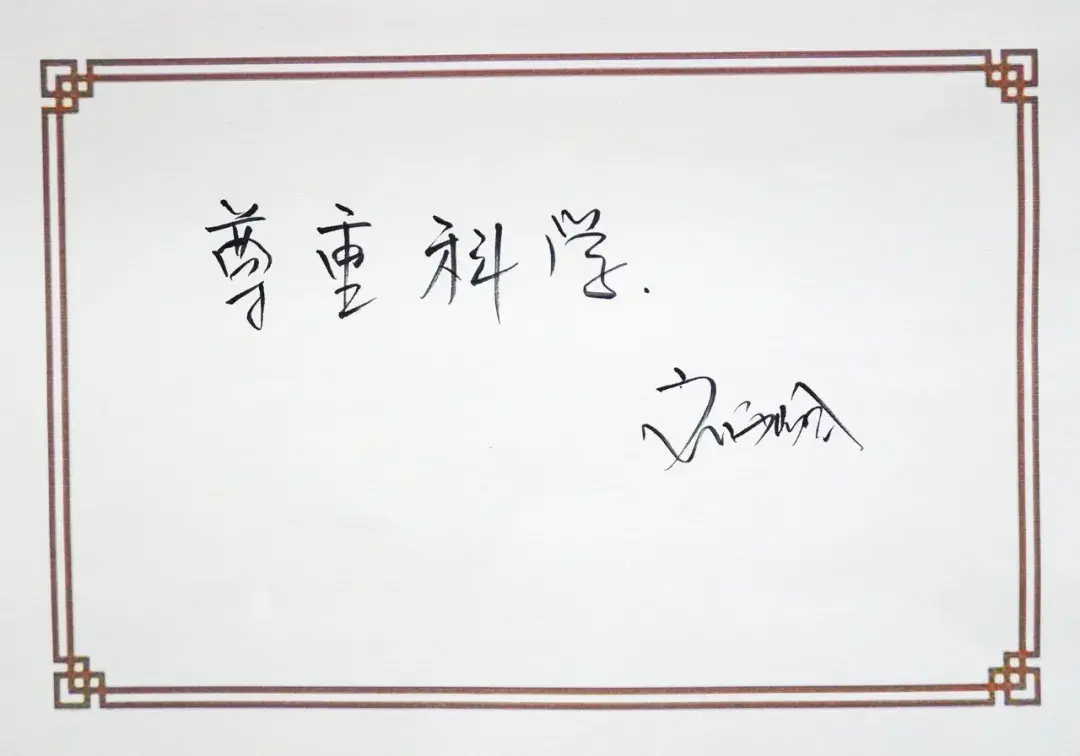 尊重科学.